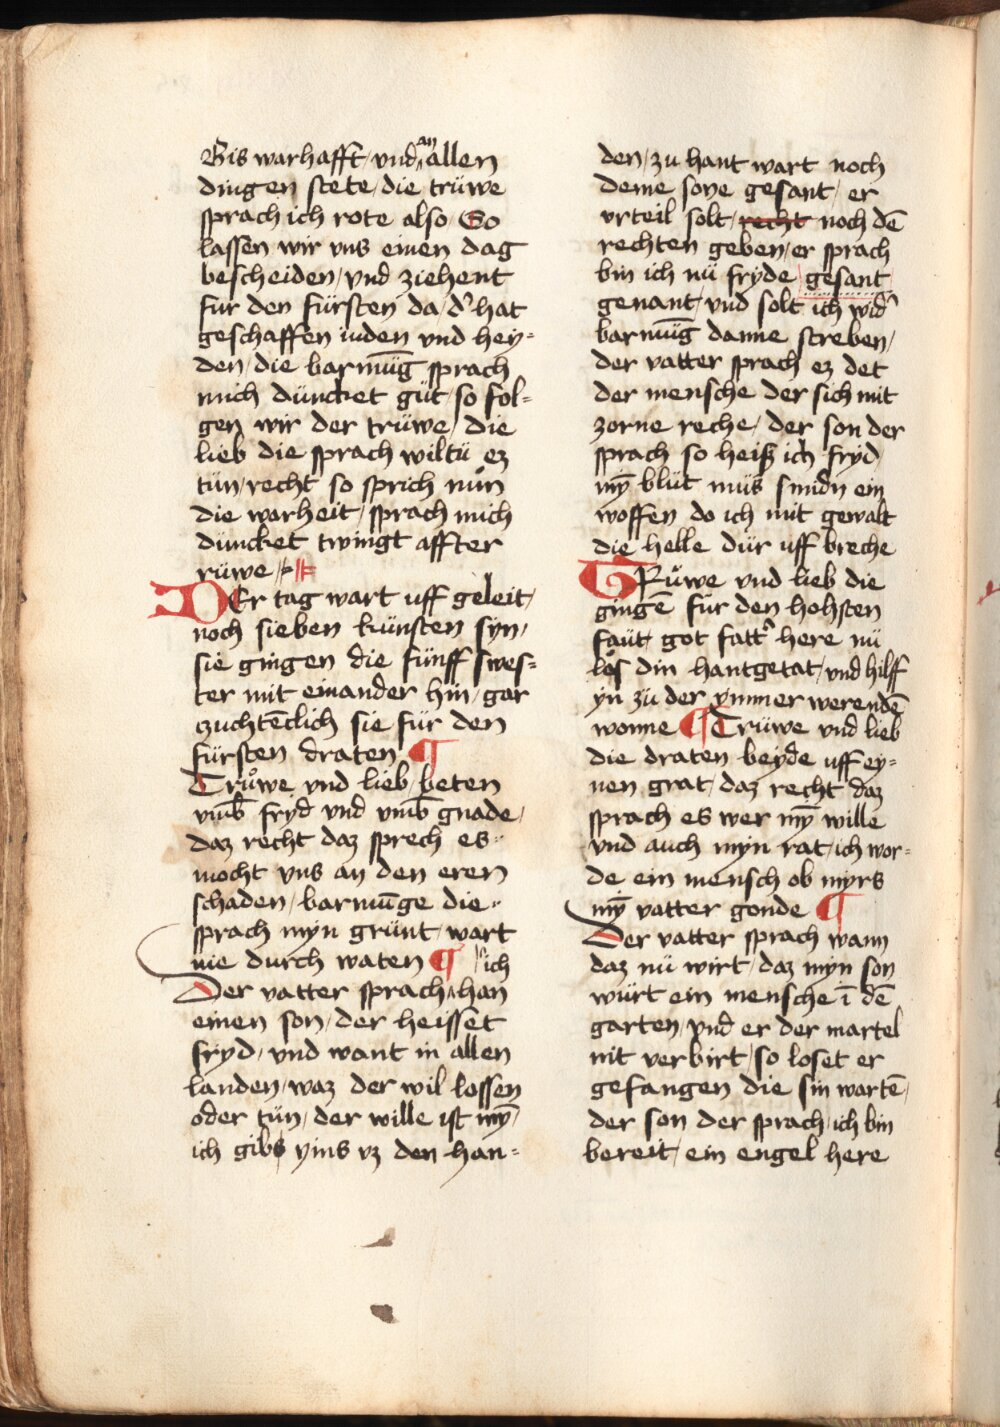 Bis warhafft / vnd an allen
dingen stete / die trüwe
sprach ich rote also So
lassen wir vns einen dag
bescheiden / vnd ziehent
fur den fürsten da / d' hat
geschaffen iuden vnd hey=
den / die barmūg sprach
mich düncket güt / so fol=
gen wir der trüwe / die
lieb die sprach wiltü ez
tün / recht so sprich nün
die worheit / sprach mich
duncket twingt affter
rüwe /
DEr tag wart uff geleit /
noch sieben künsten syn /
sie gingen die fünff swes=
ter mit einander hin / gar
zuchtēclich sie für den
fürsten draten ¶
Trůwe vnd lieb / beten
vmb fryd vnd vmb gnade /
daz recht daz sprech es
mocht vns an den eren
schaden / barmūge die
sprach myn grünt / wart
nie durch waten ¶ ich
Der vatter sprach han
einen son / der heisset
fryd / vnd want in allen
landen / waz der wil lossen
oder tün / der wille ist mȳ /
ich gibs yms vz den han=
den / zu hant wart noch
deme sone gesant / er
vrteil solt / recht noch dē
rechten geben / er sprach
bin ich nü fryde gesant
genant / vnd solt ich wid'
barmūg danne streben /
der vatter sprach ez det
der mensche der sich mit
zorne reche / der son der
sprach so heiß ich fryd /
mȳ blüt müs smidn ein
woffen do ich mit gewalt
die helle dür uff breche
TRůwe vnd lieb die
gingē für den hohsten
faüt / got fatt' here nü
lös din hantgetat / vnd hilff
yn zü der ymmer werendē
wonne ¶ Trüwe vnd lieb
die draten beyde uff ey=
nen grat / daz recht daz
sprach es wer mȳ wille
vnd auch myn rat / ich wor=
de ein mensch ob myrs
mȳ vatter gonde ¶
Der vatter sprach wann
daz nü wirt / daz myn son
würt ein mensche ī dē
garten / vnd er der martel
nit verbirt / so loset er
gefangen die sin wartē /
der son der sprach / ich bin
bereit / ein engel here